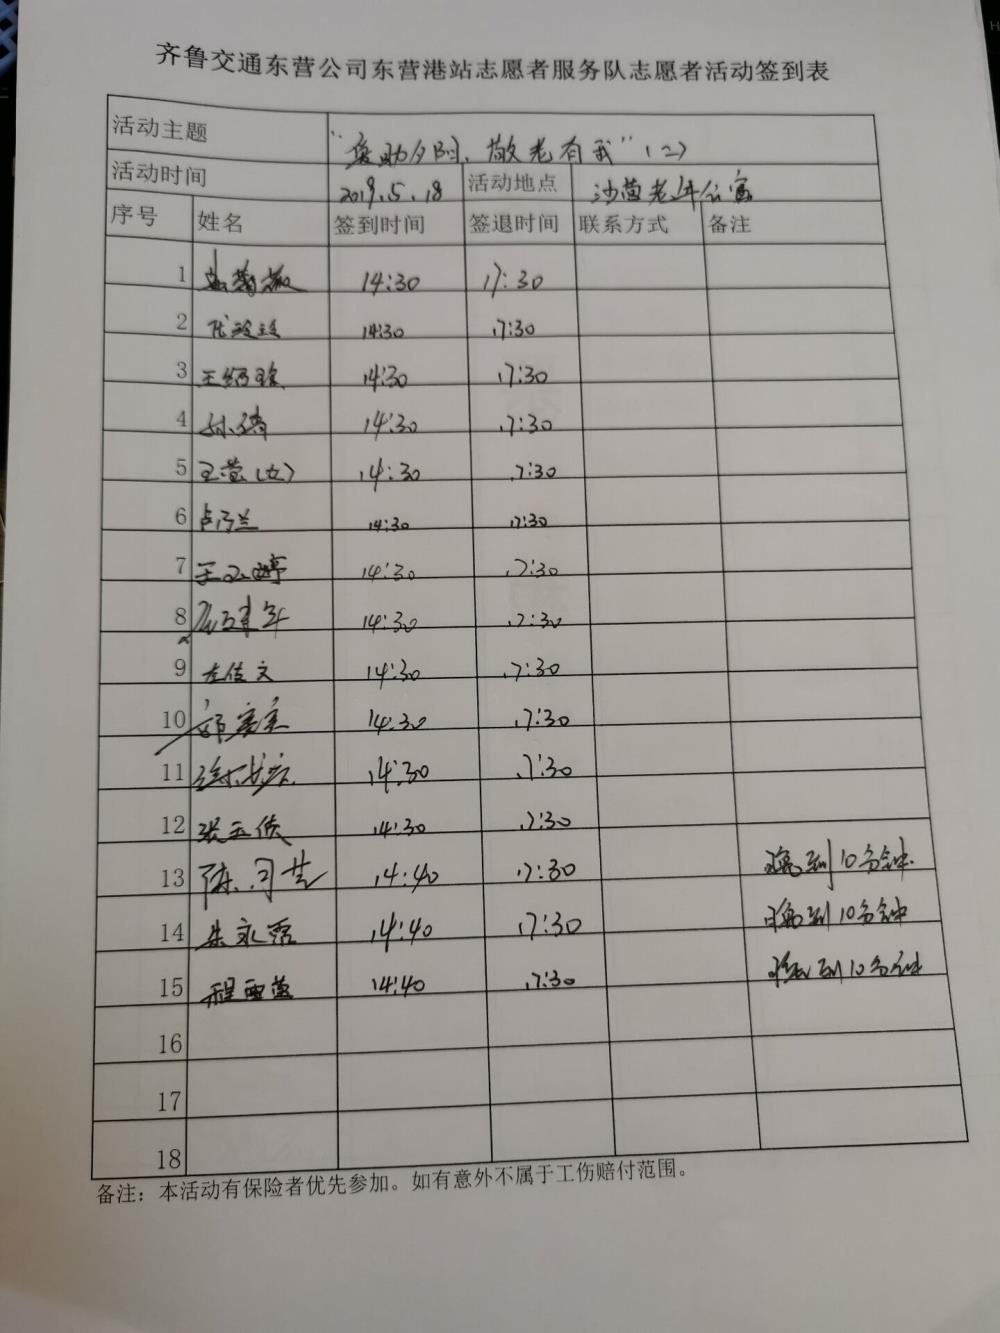 齐鲁交通东营公司东营港站志愿者服务队志愿者活动签到表
活动主题 "爱助夕阳、敬老有我"(二)
活动时间 2019.5.18 活动地点 沙营老年公寓
序号 姓名 签到时间 签退时间 联系方式 备注
1 14:30 17:30
2 14:30 17:30
3 14:30 17:30
4 孙倩 14:30 17:30
5 王莹(女) 14:30 17:30
6 14:30 17:30
7 14:30 17:30
8 14:30 17:30
9 14:30 17:30
10 14:30 17:30
11 14:30 17:30
12 张玉倩 14:30 17:30
13 14:40 17:30 晚到10分钟.
14 朱永霞 14:40 17:30 晚到10分钟
15 程亚萍 14:40 17:30 晚到10分钟
16
17
18
备注：本活动有保险者优先参加。如有意外不属于工伤赔付范围。